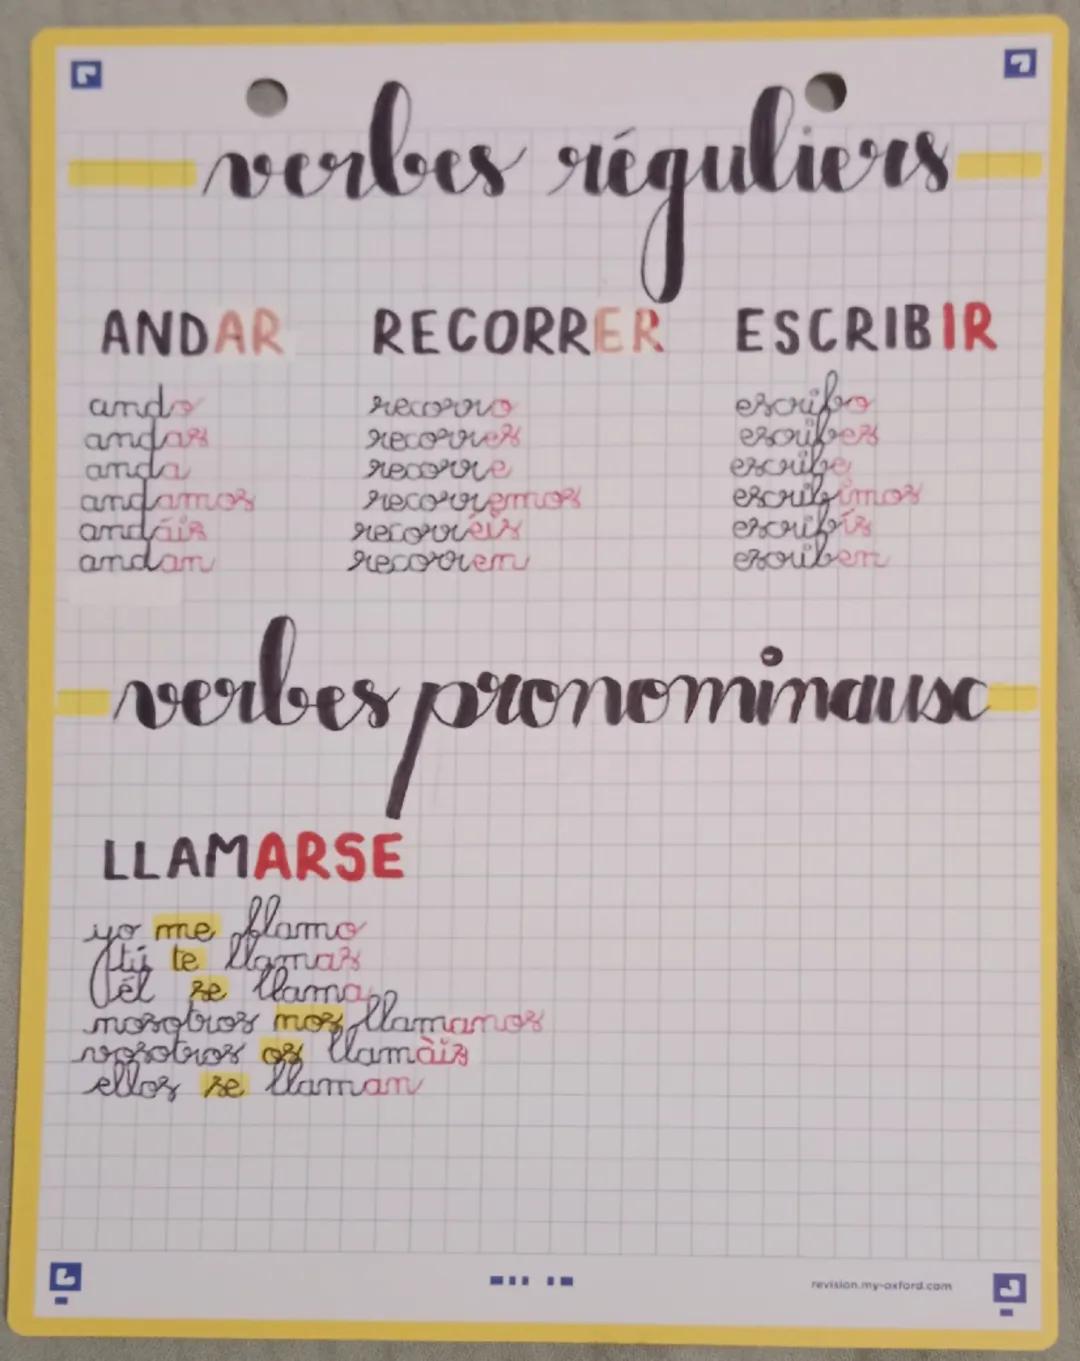 verbes réguliers
ANDAR RECORRER ESCRIBIR
ando recorro escribo
andas recorres escribes
anda recorre escribe
andamos recorremos escribimos
andáis recorréis escribís
andan recorren escriben
verbes pronominaux
LLAMARSE
yo me llamo
tú te llamas
él se llama
nosotros nos llamamos
vosotros os llamàis
ellos se llaman
revision.my-oxford.com